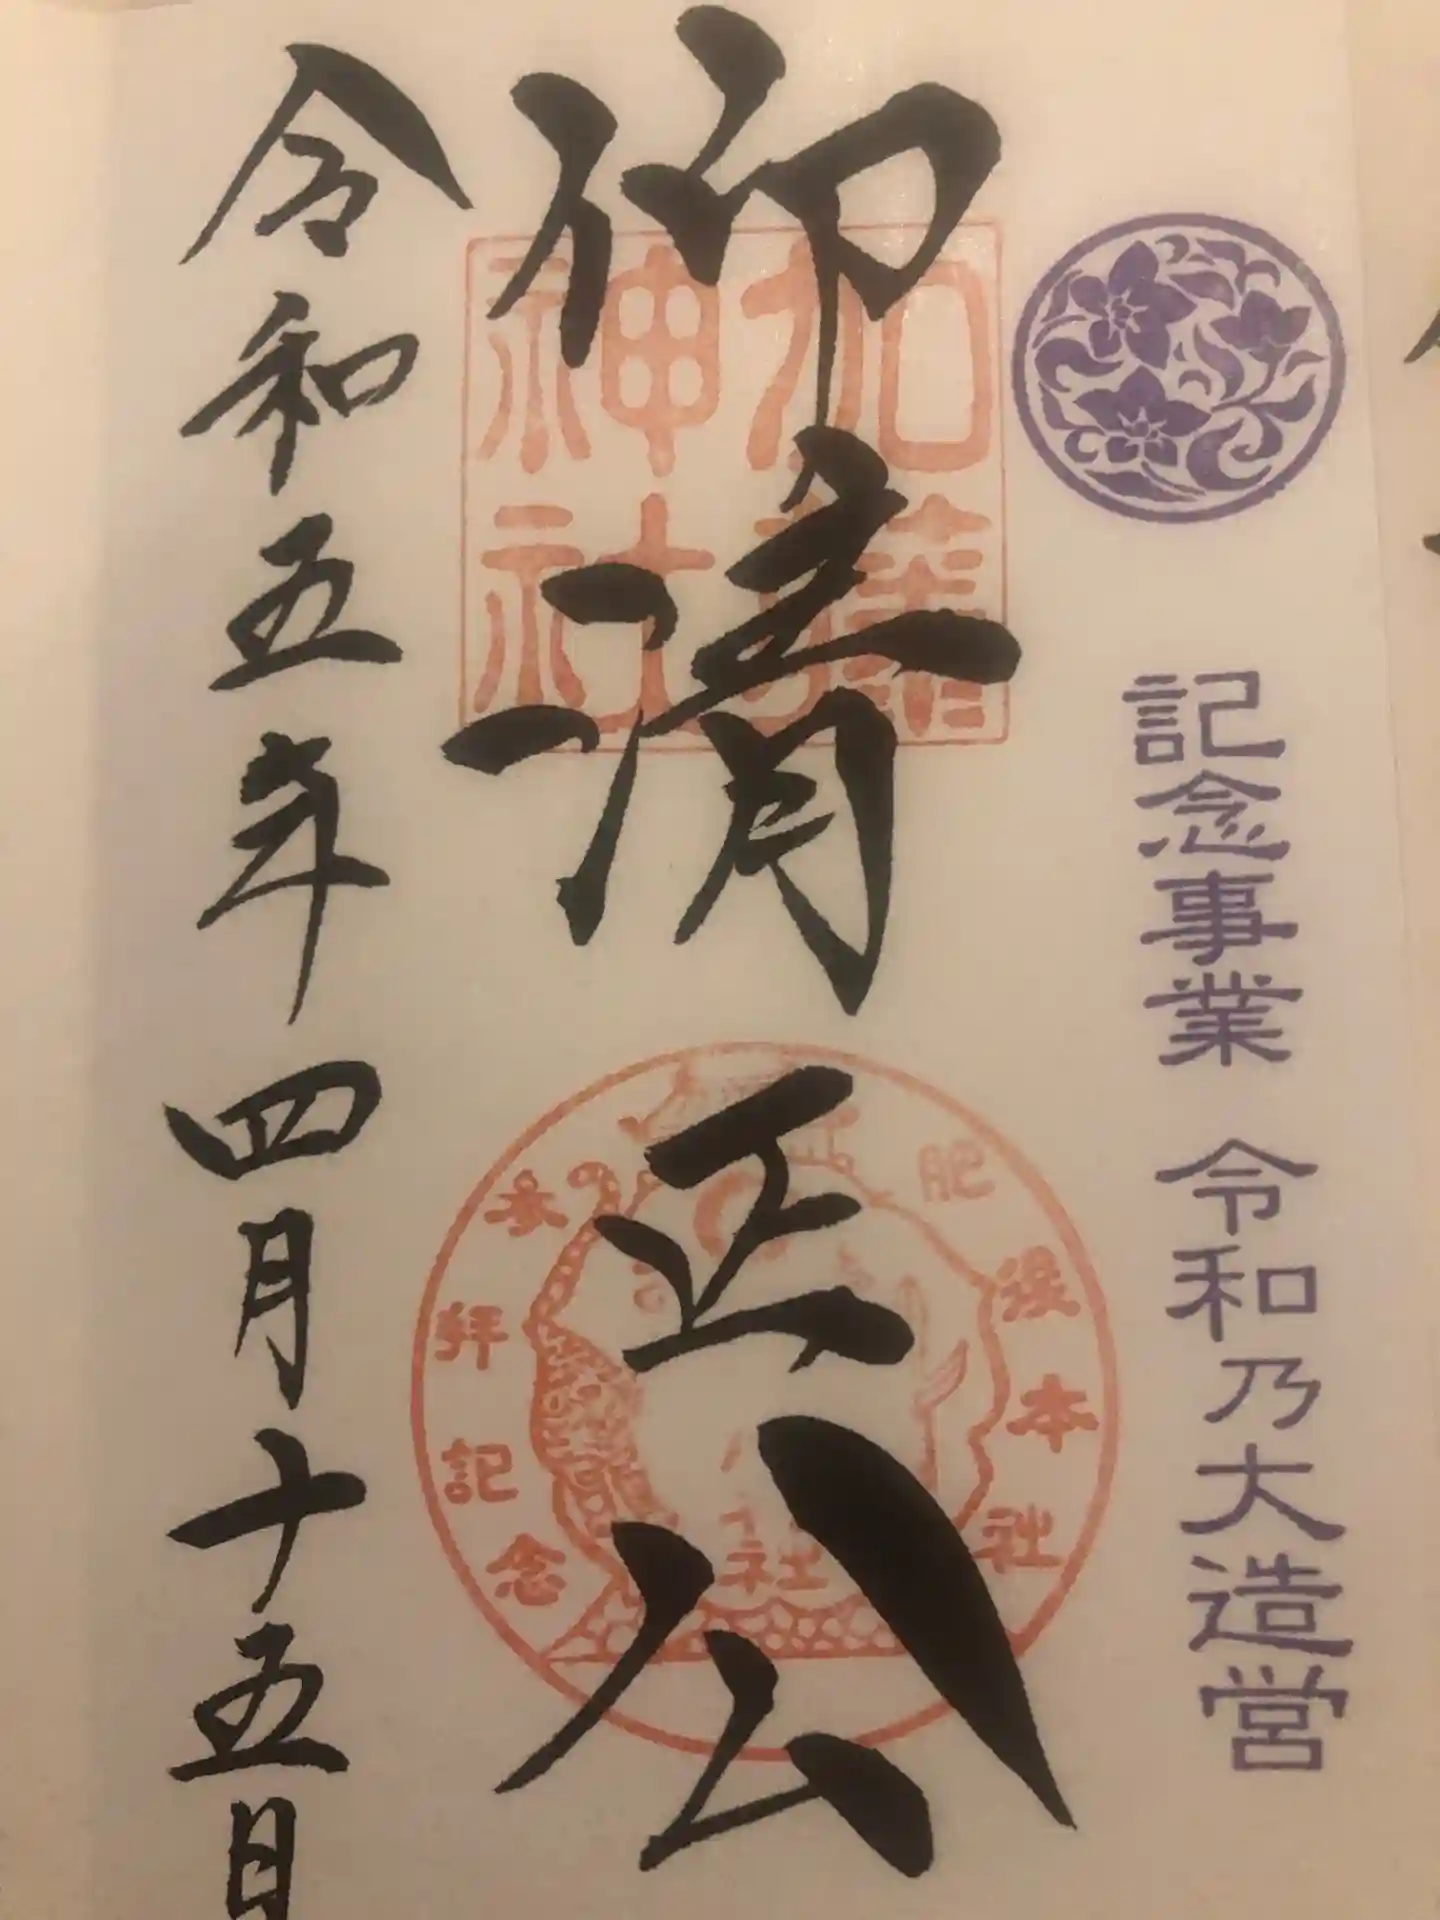 記念事業 令和乃大造営
仰清正公
加藤
神社
肥後本社
参拝記念
社
令和五年四月十五日